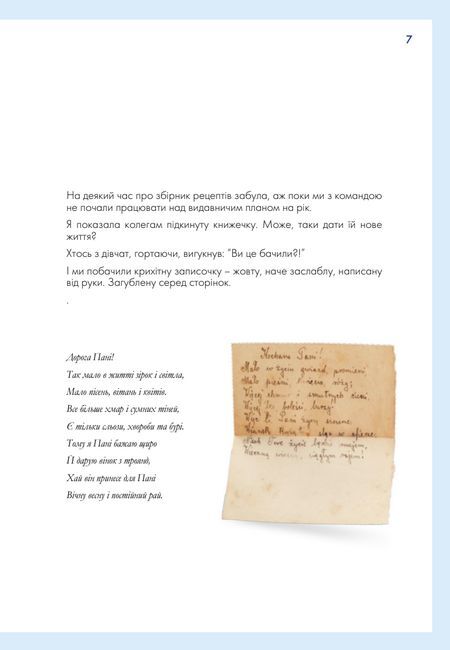 7
На деякий час про збірник рецептів забула, аж поки ми з командою
не почали працювати над видавничим планом на рік.
Я показала колегам підкинуту книжечку. Може, таки дати їй нове
життя?
Хтось з дівчат, гортаючи, вигукнув: "Ви це бачили?!"
І ми побачили крихітну записочку – жовту, наче заслаблу, написану
від руки. Загублену серед сторінок.
.
Дорога Пані!
Так мало в житті зірок і світла,
Мало пісень, вітань і квітів.
Все більше хмар і сумних тіней,
Є тільки сльози, хвороби та бурі.
Тому я Пані бажаю щиро
Й дарую вінок з троянд,
Хай він принесе для Пані
Вічну весну і постійний рай.
Kochana Pani!
Mało w życiu gwiazd, promieni
Mało pieśni